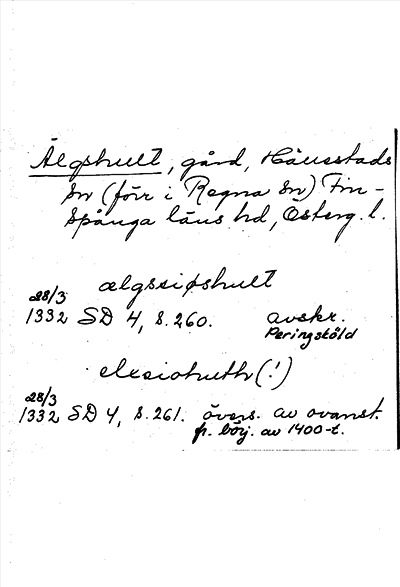 Älgshult, gård, Hävsstads
sn (förr i Regna sn) Fin-
spånga läns hd, Österg. l.
ælgssiøshult
28/3
1332 SD 4, s. 260. avskr.
Peringsköld
elxsiohuth (!)
28/3
1332 SD 4, s. 261. övers. av ovanst.
fr. börj. av 1400-t.